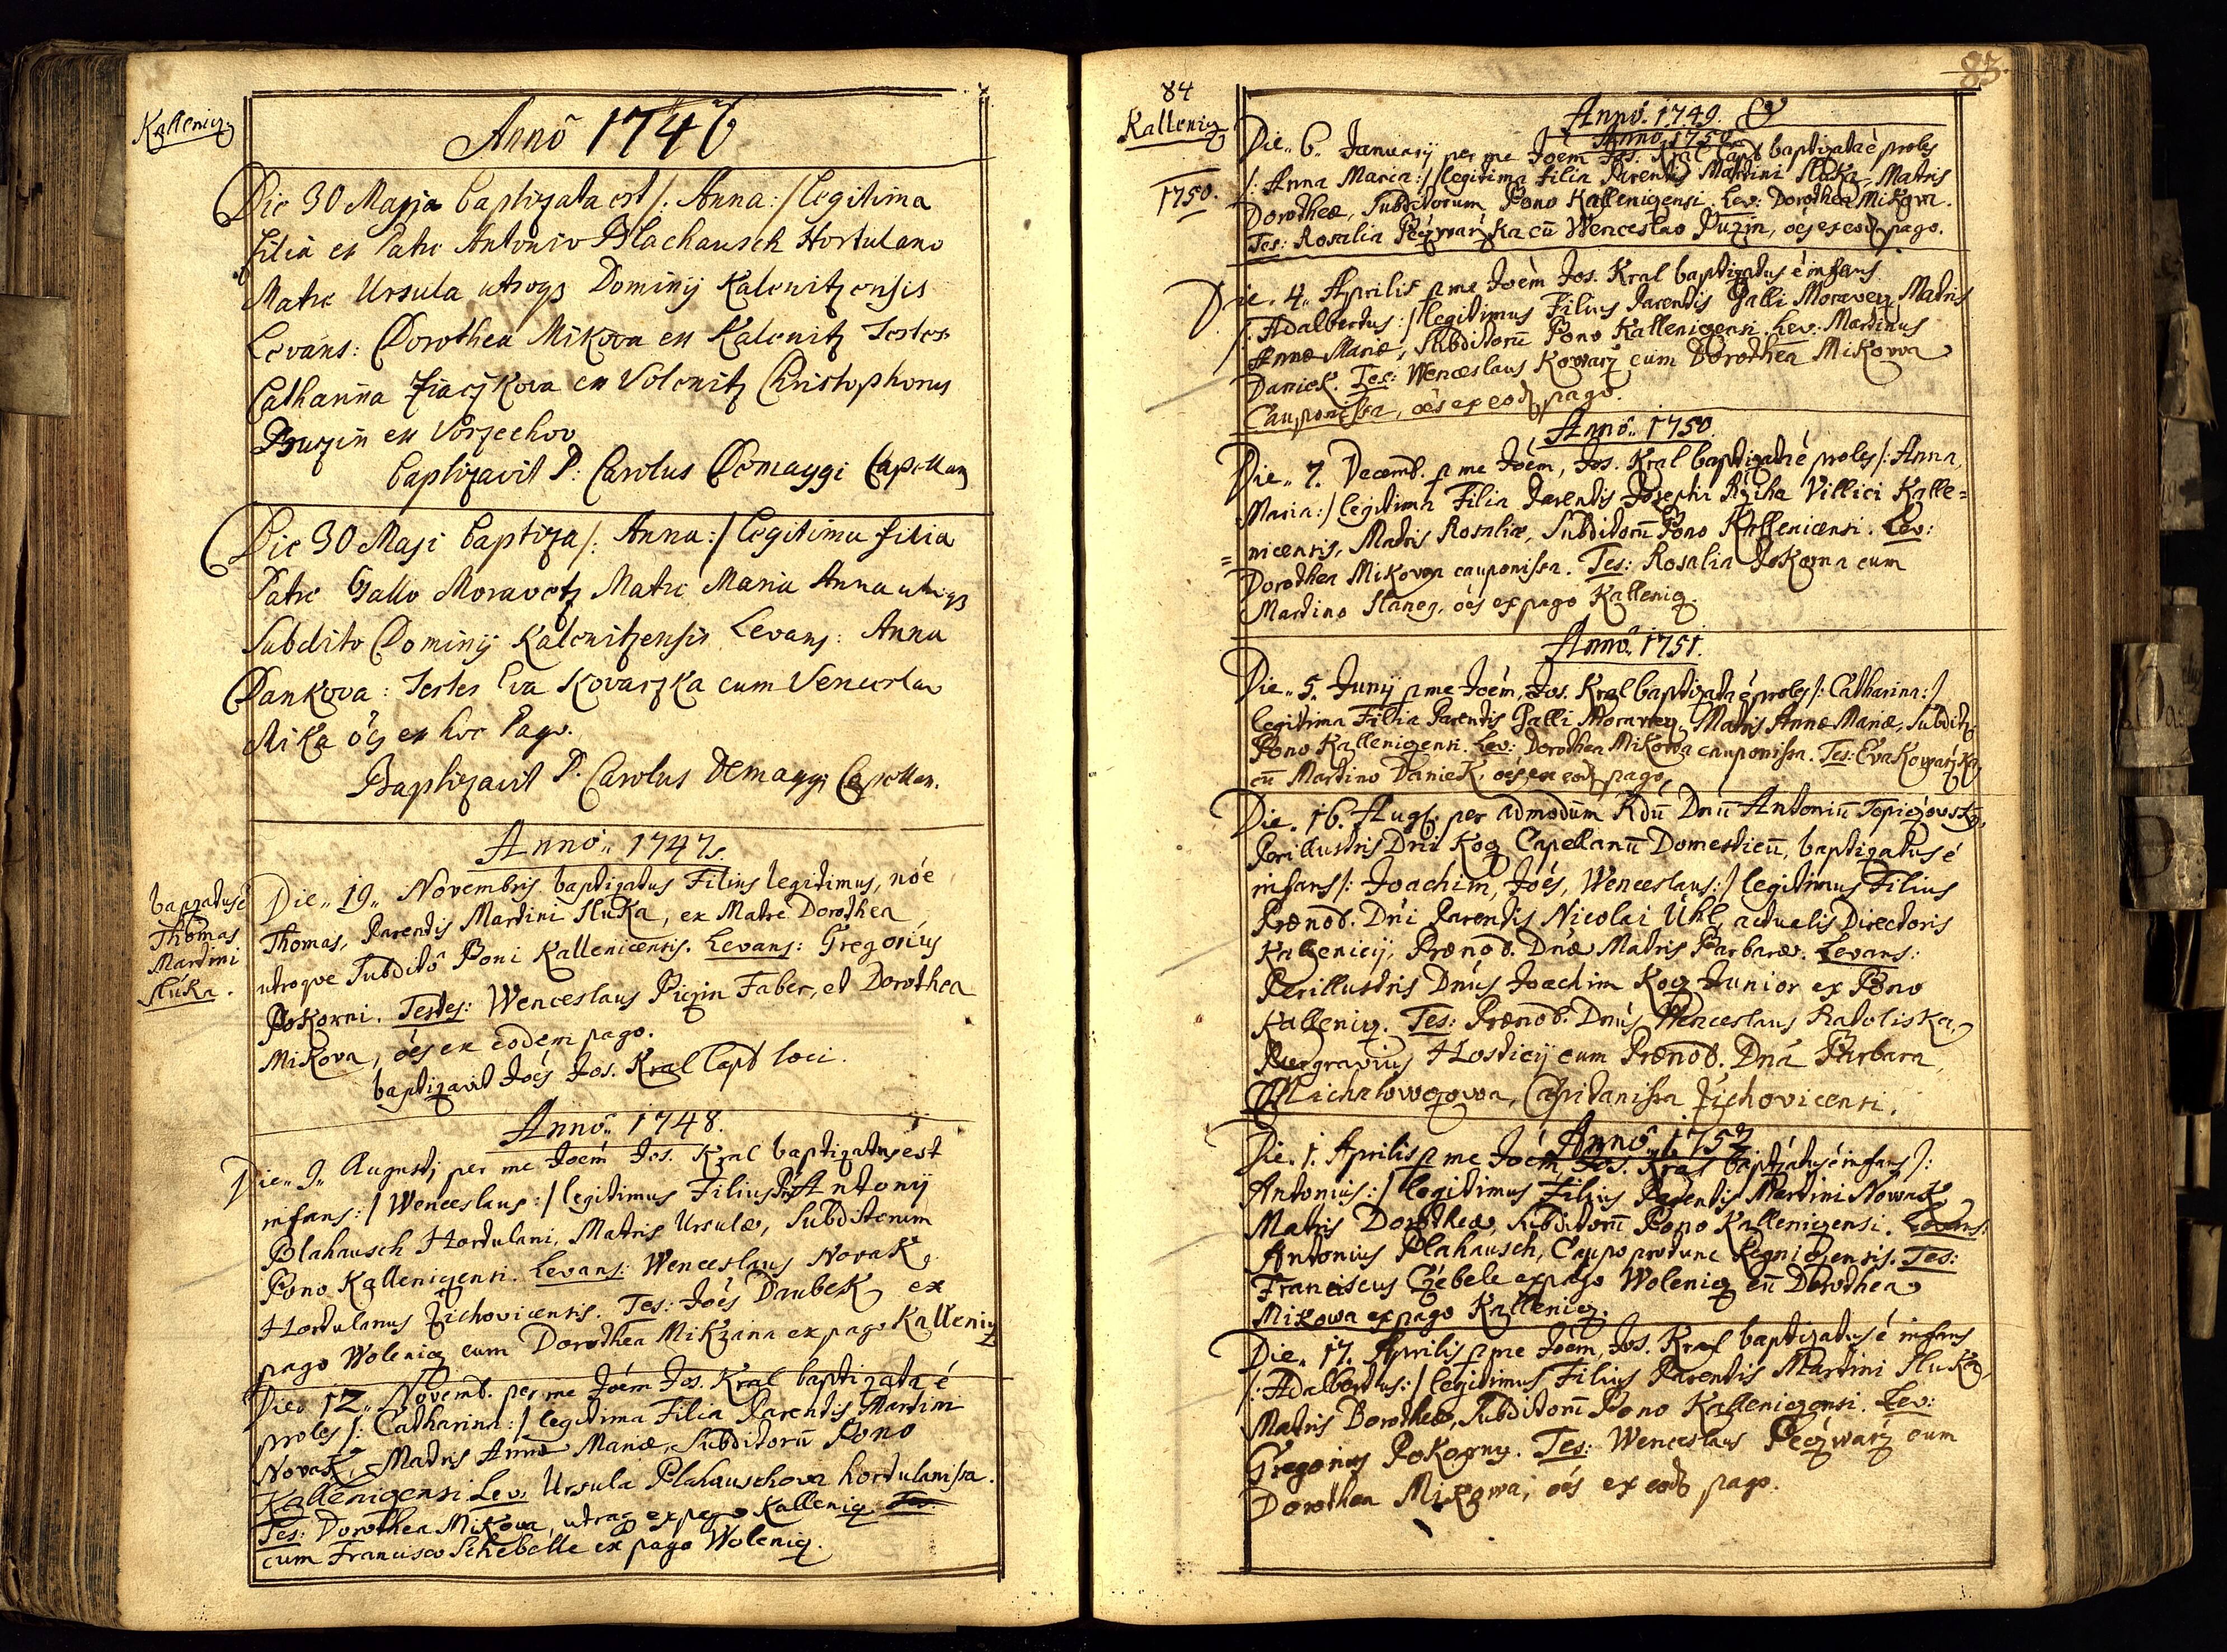 Kallenicz
Anno 1746
Die 30 Maji baptizata est /: Anna :/ legitima
filia ex Patre Antonio Blachausch Hortulano
Matre Ursula utroqз Dominij Kalenitzensis
Levans: Dorothea Mikova ex Kalenitz Testes
Catharina ex Volenitz Christophorus
ex
baptizavit P: Carolus Domaygi Capellan
Die 30 Maji baptiza /: Anna :/ legitima filia
Patre Gallo Moravetz Matre Maria Anna utroqз
Subdito Dominij Kalenitzensis Levans: Anna
Dankova: Testes Eva Kovarzka cum Venceslao
Mika oēs ex hoc Pago.
Baptizavit P. Carolus Demaygi Capellan.
Anno 1747.
baptatus ē
Thomas
Martini
Sluka.
Die 19 Novembris baptizatus Filius legitimus, nōe
Thomas, Parentis Martini Sluka, ex Matre Dorothea
utroqve Subditō Dono Kallenicensis. Levans: Gregorius
Pokorni. Testes: Wenceslaus Piczin Faber, et Dorothea
Mikova, oēs ex eodem pago.
baptizavit Joēs Jos. Kral Capl loci.
Anno 1748.
Die 9 Augusti per me Joēm Jos. Kral baptizatus est
infans :/ Wenceslaus :/ legitimus Filius Pris Antonij
Blahausch Hortulani, Matris Ursulæ, Subditorum
Dono Kallenicensi. Levans: Wenceslaus Novak
Hortulanus Zichovicensis. Tes: Joēs Daubek ex
pago Wolenicz cum Dorothea Mikzana ex pago Kallenicz
Die 12 Novemb. per me Joēm Jos. Kral baptizata ē
proles /: Catharina :/ legitima Filia Parentis Martini
Novak, Matris Annæ Mariæ, Subditorū Dono
Kallenicensi. Lev: Ursula Plahauschova hortulanissa.
Tes: Dorothea Mikova, utraq ex pago Kallenicz
cum Francisco Schebelle ex pago Wolenicz.
83.
84
Kallenicz
1750.
Anno 1749.
Anno 1750
Die 6 Januarij per me Joēm Jos. Kral Capl baptizata ē proles
/: Anna Maria :/ legitima filia Parentis Martini Sluka, Matris
Dorotheæ, Subditorum Dono Kallenicensi. Lev: Dorothea Mikova.
Tes: Rosalia Peczwarzka cū Wenceslao Puzin, oēs ex eod pago.
Die 4 Aprilis p me Joēm Jos. Kral baptizatus ē infans
/: Adalbertus :/ legitimus Filius Parentis Galli Moravecz, Matris
Annæ Mariæ, Subditorū Dono Kallenicensi. Lev: Martinus
Daniek. Tes: Wenceslaus Kowarz cum Dorothea Mikowa
Cauponissa, oēs ex eod pago.
Anno 1750.
Die 7. Decemb. p me Joēm, Jos. Kral baptizata ē proles /: Anna
Maria :/ legitima Filia Parentis Josephi Rziha Villici Kalle=
=nicensis, Matris Rosaliæ, Subditorū Dono Kallenicensi. Lev:
Dorothea Mikowa cauponissa. Tes: Rosalia Pokorna cum
Martino Slanecz, oēs ex pago Kallenicz.
Anno 1751.
Die 5. Junij p me Joēm, Jos. Kral baptizata ē proles /: Catharina :/
legitima Filia Parentis Galli Moravecz, Matris Annæ Mariæ, Subdit
Dono Kallenicensi. Lev: Dorothea Mikowa cauponissa. Tes: Eva Kowarzka
cū Martino Daniek, oēs ex eod pago.
Die 16. Aug. per admodum Rdū Dnū Antoniū Topiczovsky,
Perillustris Dni Kocz Capellanū Domesticū, baptizatus ē
infans /: Joachim, Joēs, Wenceslaus :/ legitimus Filius
Prænob. Dni Parentis Nicolai Uhl, actualis Directoris
Kallenicij, Prænob. Dnæ Matris Barbaræ. Levans:
Perillustris Dnus Joachim Kocz Junior ex Dono
Kallenicz. Tes: Prænob. Dnus Wenceslaus Radoliska
Burgravius Hosticij cum Prænob. Dna Barbara
Michalowczowa, Capitanissa Zichovicensi.
Anno 1752
Die 1. Aprilis p me Joēm, Jos. Kral baptizatus ē infans /:
Antonius :/ legitimus Filius Parentis Martini Nowak
Matris Dorotheæ, Subditorū Dono Kallenicensi. Levans:
Antonius Plahausch, Caupo protunc. Tes:
Franciscus Czebele ex pago Wolenicz cū Dorothea
Mikowa ex pago Kallenicz.
Die 17. Aprilis p me Joēm, Jos. Kral baptizatus ē infans
/: Adalbertus :/ legitimus Filius Parentis Martini Sluka,
Matris Dorotheæ, Subditorū Dono Kallenicensi. Lev:
Gregorius Pokorny. Tes: Wenceslaus Peczwarz cum
Dorothea Mikowa, oēs ex eod pago.